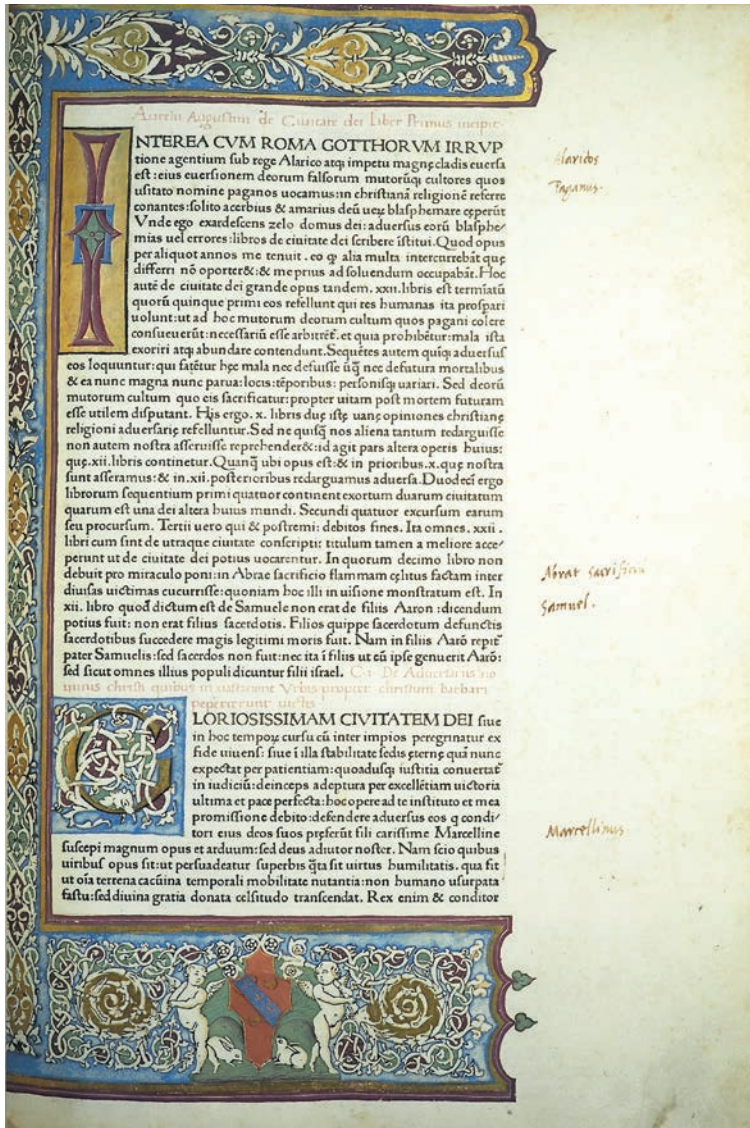 Aurelii Augustini de Civitate dei Liber Primus incipit
INTEREA CVM ROMA GOTTHORVM IRRVP
tione agentium sub rege Alarico atqȝ impetu magnę cladis euersa
est: eius euersionem deorum falsorum mutorūqȝ cultores quos
usitato nomine paganos uocamus: in christianā religionē referre
conantes: solito acerbius & amarius deū ueꝝ blasphemare cęperūt
Vnde ego exardescens zelo domus dei: aduersus eorū blasphe/
mias uel errores: libros de ciuitate dei scribere īstitui. Quod opus
per aliquot annos me tenuit. eo ꝙ alia multa intercurrebāt quę
differri nō oporter&: & me prius ad soluendum occupabāt. Hoc
autē de ciuitate dei grande opus tandem. xxii. libris est termīatū
quorū quinque primi eos refellunt qui res humanas ita prospari
uolunt: ut ad hoc mutorum deorum cultum quos pagani colere
consueuerūt: necessariū esse arbitrēt᷑. et quia prohibētur: mala ista
exoriri atqȝ abundare contendunt. Sequētes autem quīqȝ aduersus
eos loquuntur: qui fatētur hęc mala nec defuisse ūq̄ nec defutura mortalibus
& ea nunc magna nunc parua: locis: tēporibus: personisqȝ uariari. Sed deorū
mutorum cultum quo eis sacrificatur: propter uitam post mortem futuram
esse utilem disputant. His ergo. x. libris duę istę uanę opiniones christianę
religioni aduersarię refelluntur. Sed ne quisq̄ nos aliena tantum redarguisse
non autem nostra asseruisse reprehender&: id agit pars altera operis huius:
quę. xii. libris continetur. Quanq̄ ubi opus est: & in prioribus. x. quę nostra
sunt asseramus: & in. xii. posterioribus redarguamus aduersa. Duodecī ergo
librorum sequentium primi quatuor continent exortum duarum ciuitatum
quarum est una dei altera huius mundi. Secundi quatuor excursum earum
seu procursum. Tertii uero qui & postremi: debitos fines. Ita omnes. xxii.
libri cum sint de utraque ciuitate conscripti: titulum tamen a meliore acce/
perunt ut de ciuitate dei potius uocarentur. In quorum decimo libro non
debuit pro miraculo poni: in Abrae sacrificio flammam cęlitus factam inter
diuisas uictimas cucurrisse: quoniam hoc illi in uisione monstratum est. In
xii. libro quod dictum est de Samuele non erat de filiis Aaron: dicendum
potius fuit: non erat filius sacerdotis. Filios quippe sacerdotum defunctis
sacerdotibus succedere magis legitimi moris fuit. Nam in filiis Aarō repit᷑
pater Samuelis: sed sacerdos non fuit: nec ita ī filiis ut eū ipse genuerit Aarō:
sed sicut omnes illius populi dicuntur filii israel. C. i. De Aduersariis no
minis christi quibus in uastatione Vrbis propter christum barbari
pepercerunt uictis
GLORIOSISSIMAM CIVITATEM DEI siue
in hoc tempoꝝ cursu cū inter impios peregrinatur ex
fide uiuens: siue ī illa stabilitate sedis ęternę quā nunc
expectat per patientiam: quoadusqȝ iustitia conuertat᷑
in iudiciū: deinceps adeptura per excellētiam uictoria
ultima et pace perfecta: hoc opere ad te instituto et mea
promissione debito: defendere aduersus eos q condi/
tori eius deos suos pręferūt fili carissime Marcelline
suscepi magnum opus et arduum: sed deus adiutor noster. Nam scio quibus
uiribus opus sit: ut persuadeatur superbis q̄ta sit uirtus humilitatis. qua fit
ut oīa terrena cacūina temporali mobilitate nutantia: non humano usurpata
fastu: sed diuina gratia donata celsitudo transcendat. Rex enim & conditor
Alaricus
Paganus.
Abrae sacrificiū
Samuel.
Marcellinus